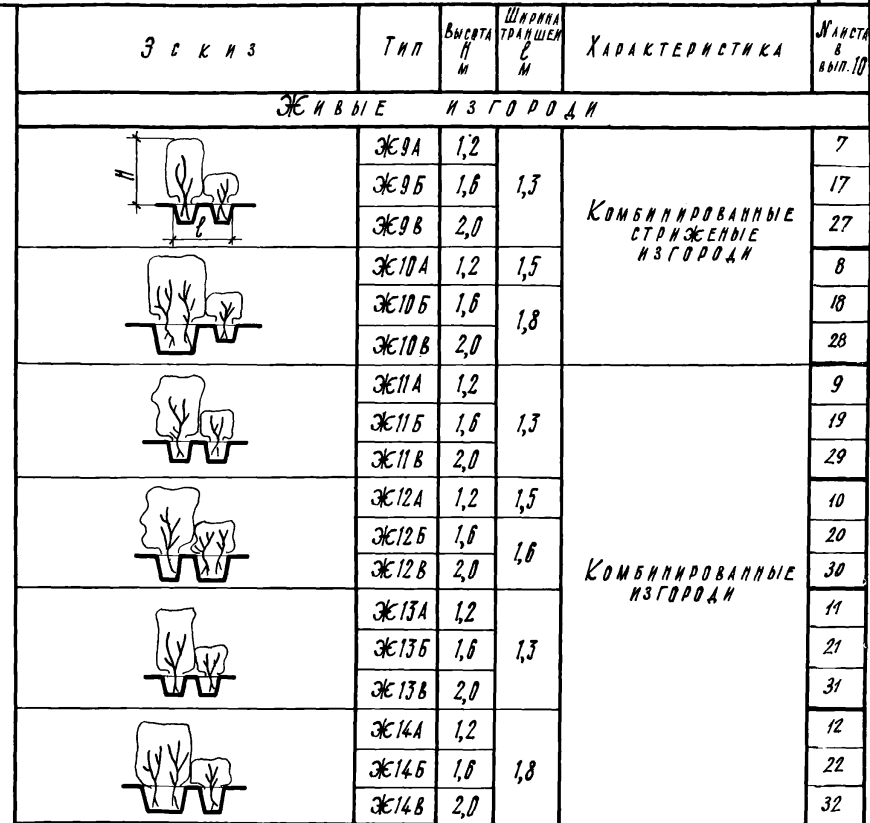 Эскиз Тип Высота H м Ширина траншеи ℓ м Характеристика № листа в вып. 10
Живые изгороди
H
ℓ
Ж9А 1,2 1,3 Комбинированные стриженые изгороди 7
Ж9Б 1,6 17
Ж9В 2,0 27
Ж10А 1,2 1,5 8
Ж10Б 1,6 1,8 18
Ж10В 2,0 28
Ж11А 1,2 1,3 Комбинированные изгороди 9
Ж11Б 1,6 19
Ж11В 2,0 29
Ж12А 1,2 1,5 10
Ж12Б 1,6 1,6 20
Ж12В 2,0 30
Ж13А 1,2 1,3 11
Ж13Б 1,6 21
Ж13В 2,0 31
Ж14А 1,2 1,8 12
Ж14Б 1,6 22
Ж14В 2,0 32